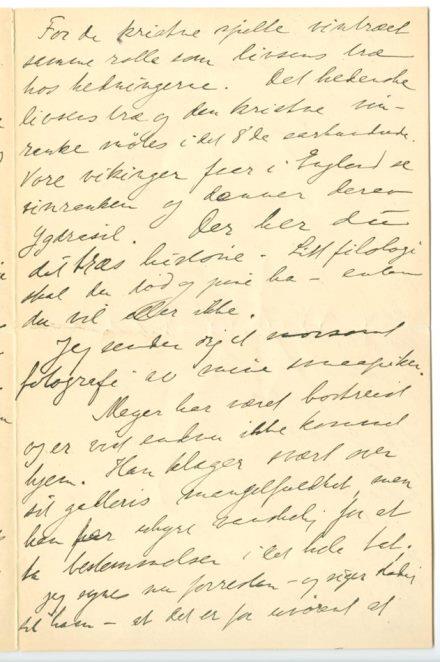 For de kristne spille vintræet
samme rolle som livsens træ
hos hedningerne. Det hedenske
livsens træ og den kristne vin-
ranke mødes i det 8'de aarhundrede.
Vore vikinger faar i England se
vinranken og danner deraf
Ygdrasil. Der har du
dit træs historie. Litt filologi
skal du død og pine ha – enten
du vil eller ikke.
Jeg sender dig et morsomt
fotografi av mine smaapiker.
Meyer har været bortreist
og er vist endnu ikke kommet
hjem. Han klager svært over
sit galleris mangelfuldhet, men
han har uhyre vanskelig for at
ta bestemmelser i det hele tat.
Jeg synes nu forresten – og siger stadig
til ham – at det er for urørent at